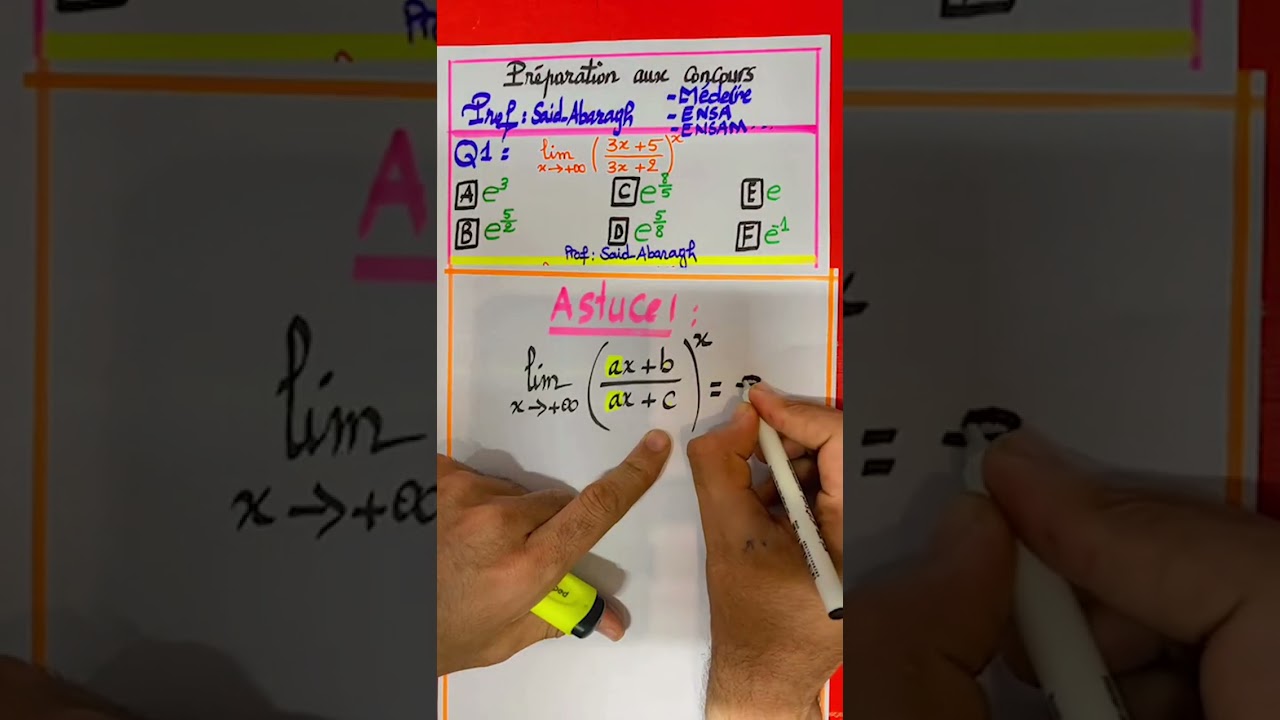 Préparation aux concours
Prof : Said-Abaragh
- Médecine
- ENSA
- ENSAM ...
Q1 : lim x→+∞ ((3x+5)/(3x+2))^x
A e^3
C e^(8/5)
E e
B e^(5/2)
D e^(5/8)
F e^-1
Prof : Said-Abaragh
Astuce 1 :
lim x→+∞ ((ax+b)/(ax+c))^x =